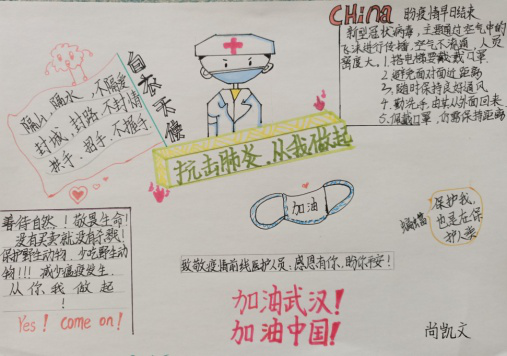 China 盼疫情早日结束
新型冠状病毒,主要通过空气中的
飞沫进行传播,空气不流通,人员
密度大。1.搭电梯要戴口罩
2.避免面对面过近距离
3.随时保持良好通风
4.勤洗手,由其从外面回来
5.佩戴口罩,勿需保持距离
隔山,隔水,不隔爱
封城,封路,不封情
拱手,招手,不握手
白衣天使
抗击肺炎,从我做起
加油
善待自然!敬畏生命!
没有买卖就没有杀戮!
保护野生动物,少吃野生动
物!!!减少瘟疫发生,
从你我做起
!
Yes! come on!
蝙蝠
保护我,
也是在保
护人类
致敬疫情前线医护人员:感恩有你,盼你平安!
加油武汉!
加油中国!
尚凯文